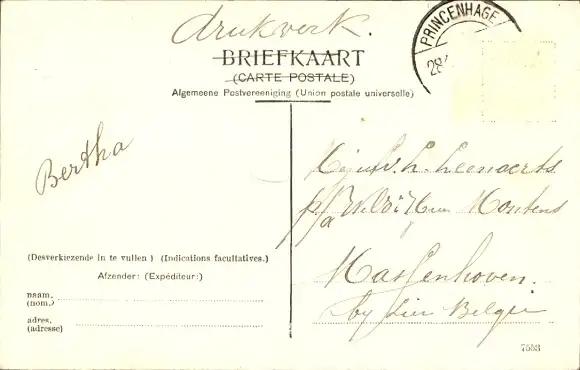 drukwerk.
BRIEFKAART
(CARTE POSTALE)
Algemeene Postvereeniging (Union postale universelle)
PRINCENHAGE
28
Bertha
Mejufv. L. Leenaerts
p/a
Montens
Masthenhoven.
by Lier België
(Desverkiezende in te vullen) (Indications facultatives.)
Afzender: (Expéditeur:)
naam.
(nom.)
adres.
(adresse)
7553